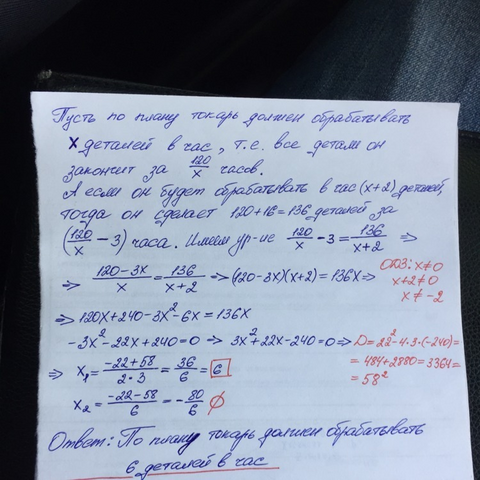 Пусть по плану токарь должен обрабатывать
x деталей в час, т.е. все детали он
закончит за 120/x часов.
А если он будет обрабатывать в час (x+2) деталей,
тогда он сделает 120+16=136 деталей за
(120/x - 3) часа. Имеем ур-ие 120/x - 3 = 136/(x+2) ⇒
⇒ (120-3x)/x = 136/(x+2) ⇒ (120-3x)(x+2) = 136x ⇒
ОДЗ: x≠0
x+2≠0
x≠-2
⇒ 120x+240-3x²-6x=136x
-3x²-22x+240=0 ⇒ 3x²+22x-240=0 ⇒
D=22²-4·3·(-240)=
=484+2880=3364=
=58²
⇒ x₁ = (-22+58)/(2·3) = 36/6 = 6
x₂ = (-22-58)/6 = -80/6 ∅
Ответ: По плану токарь должен обрабатывать
6 деталей в час